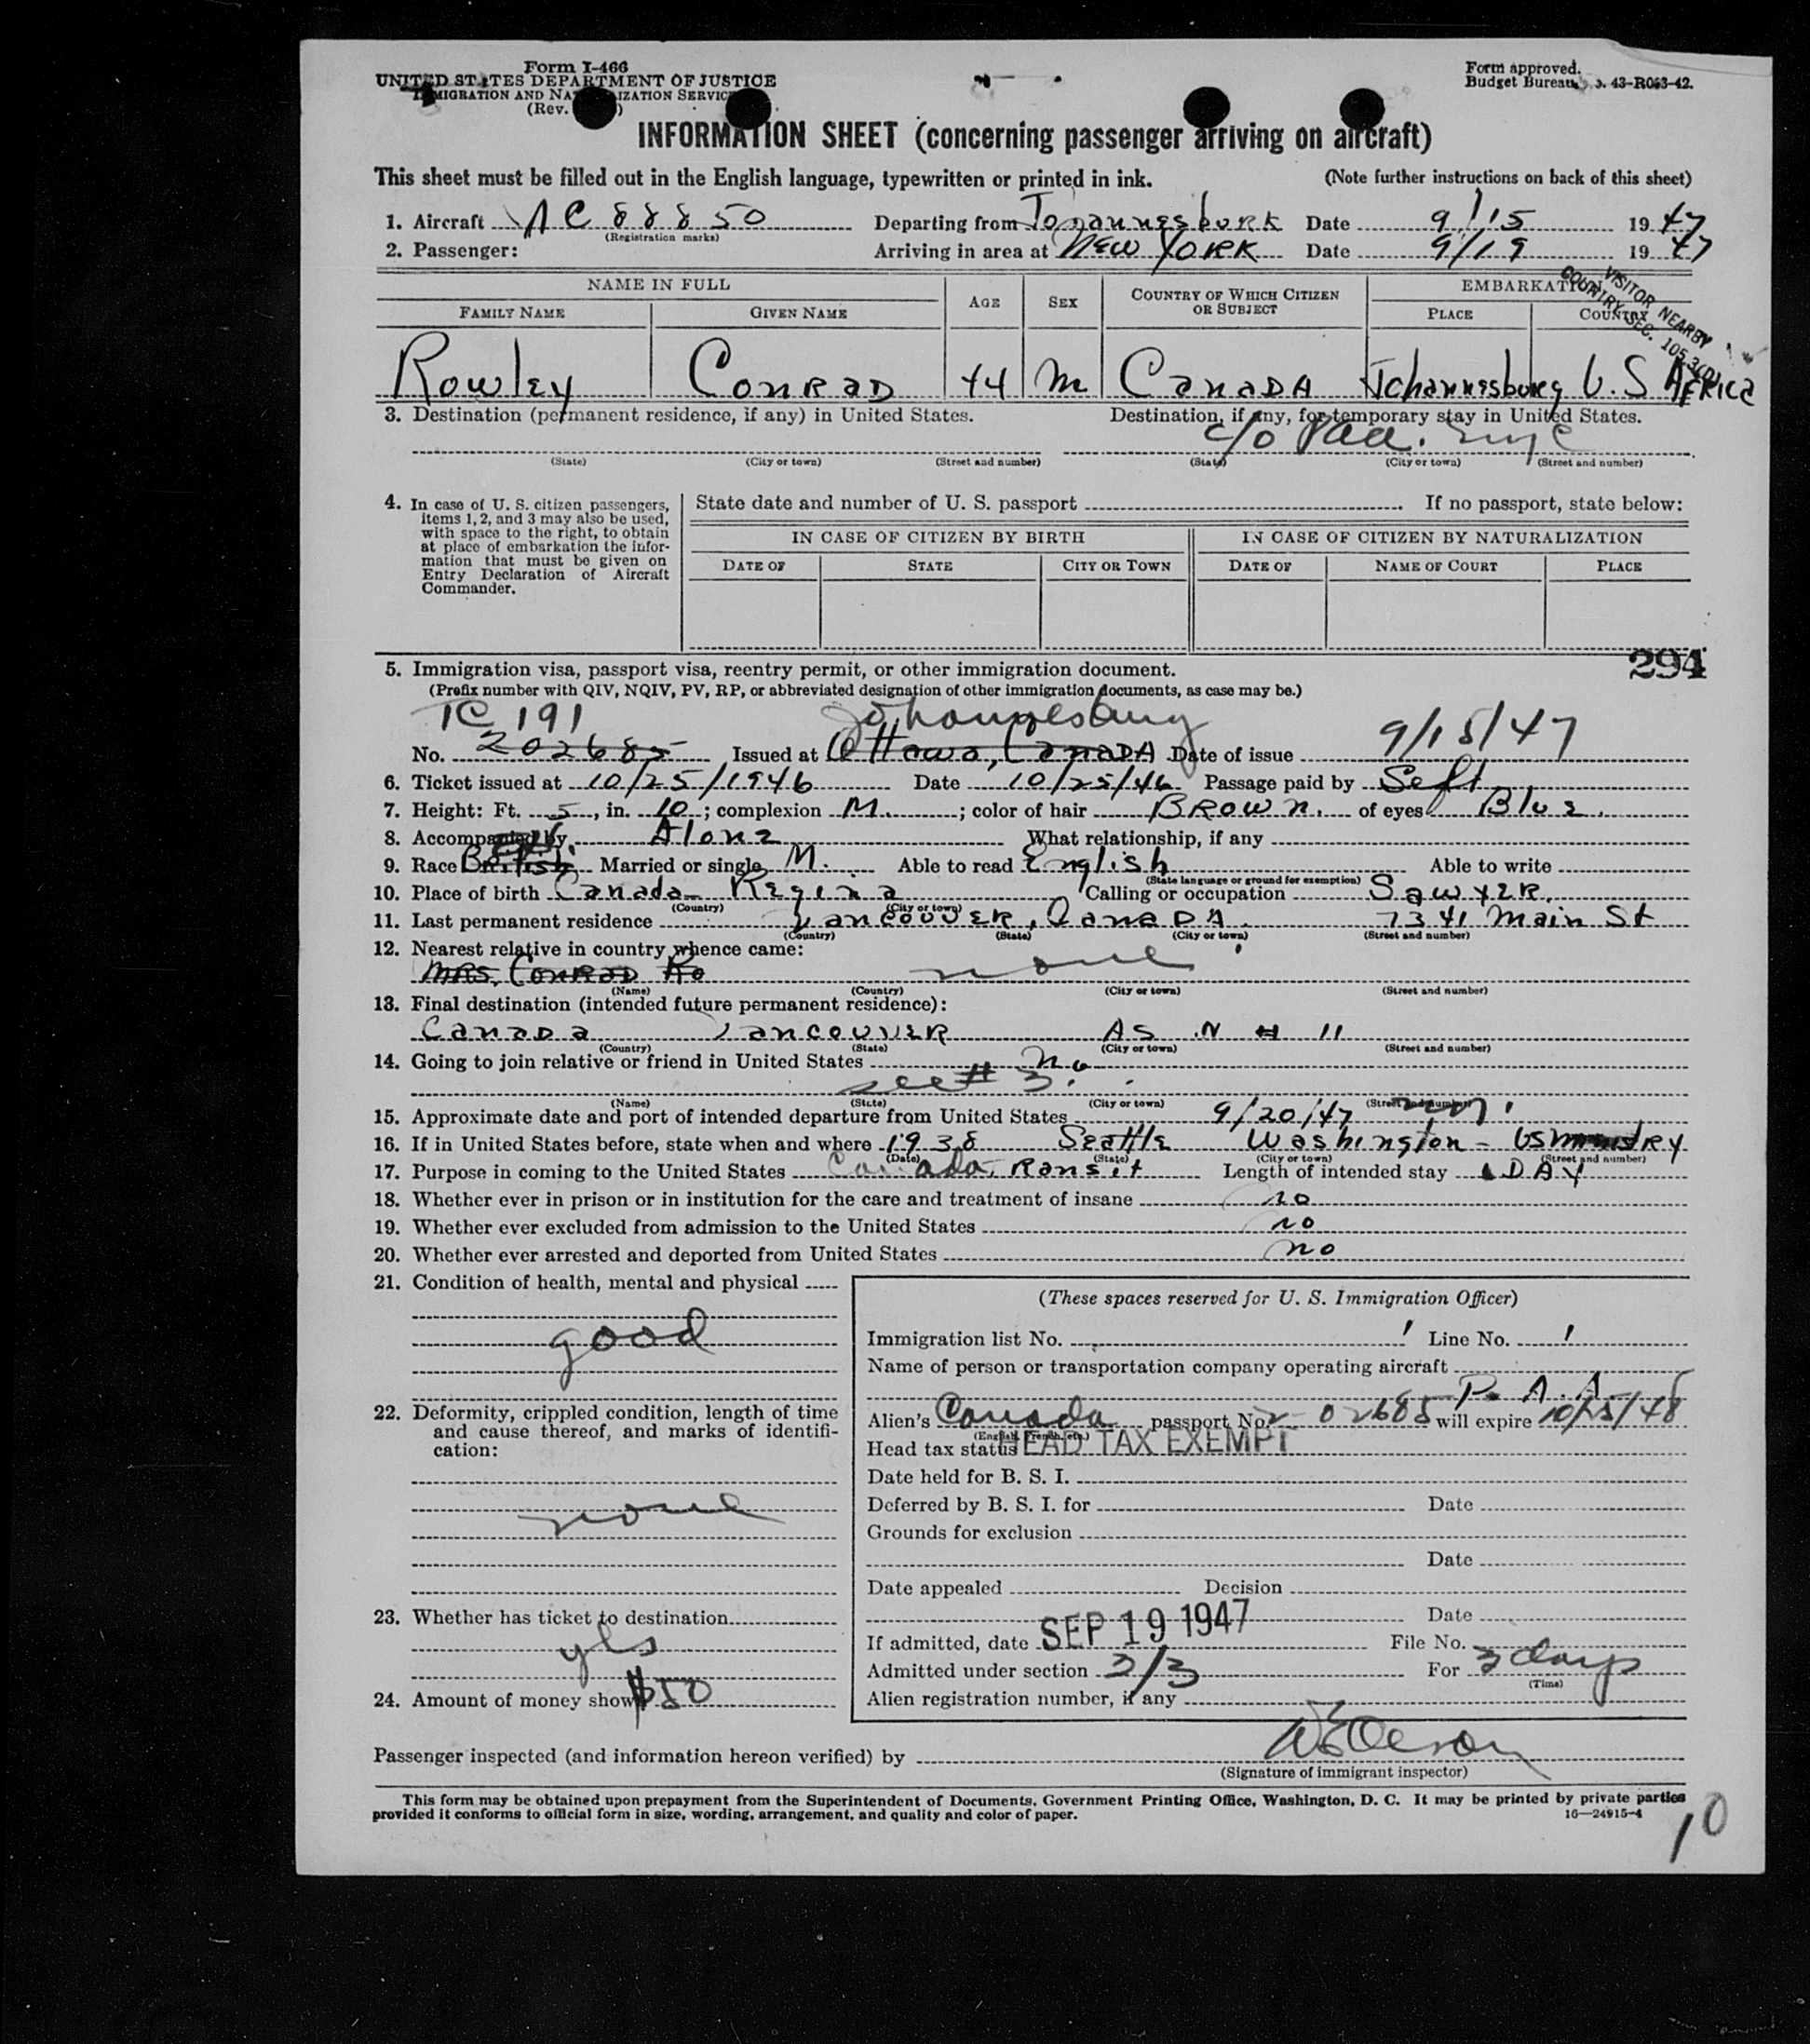 Form I-466
UNITED STATES DEPARTMENT OF JUSTICE
IMMIGRATION AND NATURALIZATION SERVICE
(Rev. )
Form approved.
Budget Bureau 43-R063-42.
INFORMATION SHEET (concerning passenger arriving on aircraft)
This sheet must be filled out in the English language, typewritten or printed in ink. (Note further instructions on back of this sheet)
1. Aircraft NC 88850 Departing from Johannesburk Date 9/15 1947
(Registration marks)
2. Passenger: Arriving in area at New York Date 9/19 1947
VISITOR NEARBY
COUNTRY SEC.
NAME IN FULL AGE SEX COUNTRY OF WHICH CITIZEN OR SUBJECT EMBARKATION
FAMILY NAME GIVEN NAME PLACE COUNTRY
Rowley Conrad 44 M Canada Johannesburg U.S Africa
3. Destination (permanent residence, if any) in United States. Destination, if any, for temporary stay in United States.
c/o Paa. NYC
(State) (City or town) (Street and number) (State) (City or town) (Street and number)
4. In case of U. S. citizen passengers, items 1, 2, and 3 may also be used, with space to the right, to obtain at place of embarkation the information that must be given on Entry Declaration of Aircraft Commander.
State date and number of U. S. passport If no passport, state below:
IN CASE OF CITIZEN BY BIRTH IN CASE OF CITIZEN BY NATURALIZATION
DATE OF STATE CITY OR TOWN DATE OF NAME OF COURT PLACE
294
5. Immigration visa, passport visa, reentry permit, or other immigration document.
(Prefix number with QIV, NQIV, PV, RP, or abbreviated designation of other immigration documents, as case may be.)
TC 191 Johannesburg
No. 202685 Issued at Ottowa, Canada Date of issue 9/15/47
6. Ticket issued at 10/25/1946 Date 10/25/46 Passage paid by Self
7. Height: Ft. 5, in. 10; complexion M.; color of hair Brown. of eyes Blue.
8. Accompanied by Alone What relationship, if any
9. Race British Married or single M. Able to read English Able to write
(State language or ground for exemption)
10. Place of birth Canada Regina Calling or occupation Sawyer.
(Country) (City or town)
11. Last permanent residence Vancouver, Canada. 7341 Main St
(Country) (State) (City or town) (Street and number)
12. Nearest relative in country whence came:
Mrs. Conrad Ro none
(Name) (Country) (City or town) (Street and number)
13. Final destination (intended future permanent residence):
Canada Vancouver As N # 11
(Country) (State) (City or town) (Street and number)
14. Going to join relative or friend in United States No
see # 3.
(Name) (State) (City or town) (Street and number)
15. Approximate date and port of intended departure from United States 9/20/47 NY
16. If in United States before, state when and where 1938 Seattle Washington
(Date) (State) (City or town) (Street and number)
17. Purpose in coming to the United States Canada, Ransit Length of intended stay 1 DAY
18. Whether ever in prison or in institution for the care and treatment of insane no
19. Whether ever excluded from admission to the United States no
20. Whether ever arrested and deported from United States no
21. Condition of health, mental and physical
good
22. Deformity, crippled condition, length of time and cause thereof, and marks of identification:
none
23. Whether has ticket to destination
yes
24. Amount of money shown $50
(These spaces reserved for U. S. Immigration Officer)
Immigration list No. 1 Line No. 1
Name of person or transportation company operating aircraft
P. A. A.
Alien's Canada passport No. 202685 will expire 10/25/48
(English, French, etc.)
Head tax status HEAD TAX EXEMPT
Date held for B. S. I.
Deferred by B. S. I. for Date
Grounds for exclusion
Date
Date appealed Decision
Date
If admitted, date SEP 19 1947 File No.
Admitted under section 3/3 For 3 days
(Time)
Alien registration number, if any
Passenger inspected (and information hereon verified) by
(Signature of immigrant inspector)
This form may be obtained upon prepayment from the Superintendent of Documents, Government Printing Office, Washington, D. C. It may be printed by private parties
provided it conforms to official form in size, wording, arrangement, and quality and color of paper. 16—24915-4
10